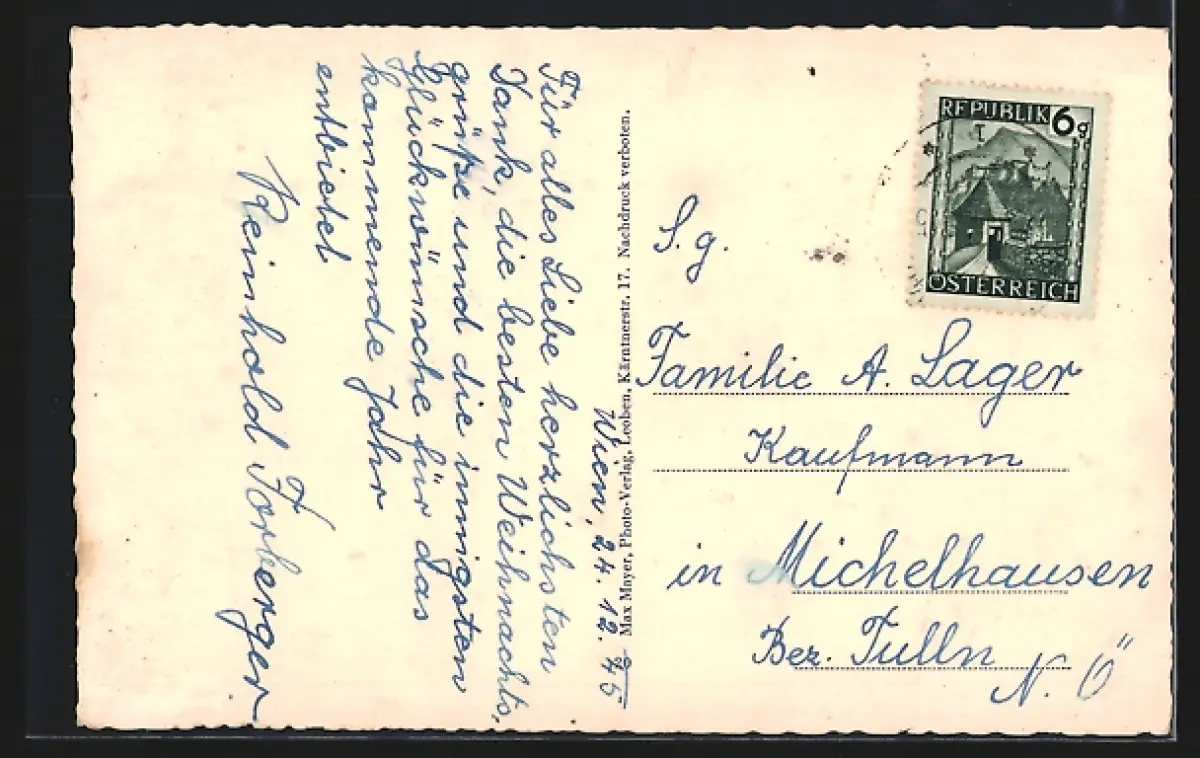 Wien, 24. 12. 45
Für alles Liebe herzlichsten
Dank, die besten Weihnachts,
grüße und die innigsten
Glückwünsche für das
kommende Jahr
entbietet
Reinhold Forberger
Max Mayer, Photo-Verlag, Leoben, Kärntnerstr. 17. Nachdruck verboten.
REPUBLIK 6g
ÖSTERREICH
S. g.
Familie A. Lager
Kaufmann
in Michelhausen
Bez. Tulln
N. Ö